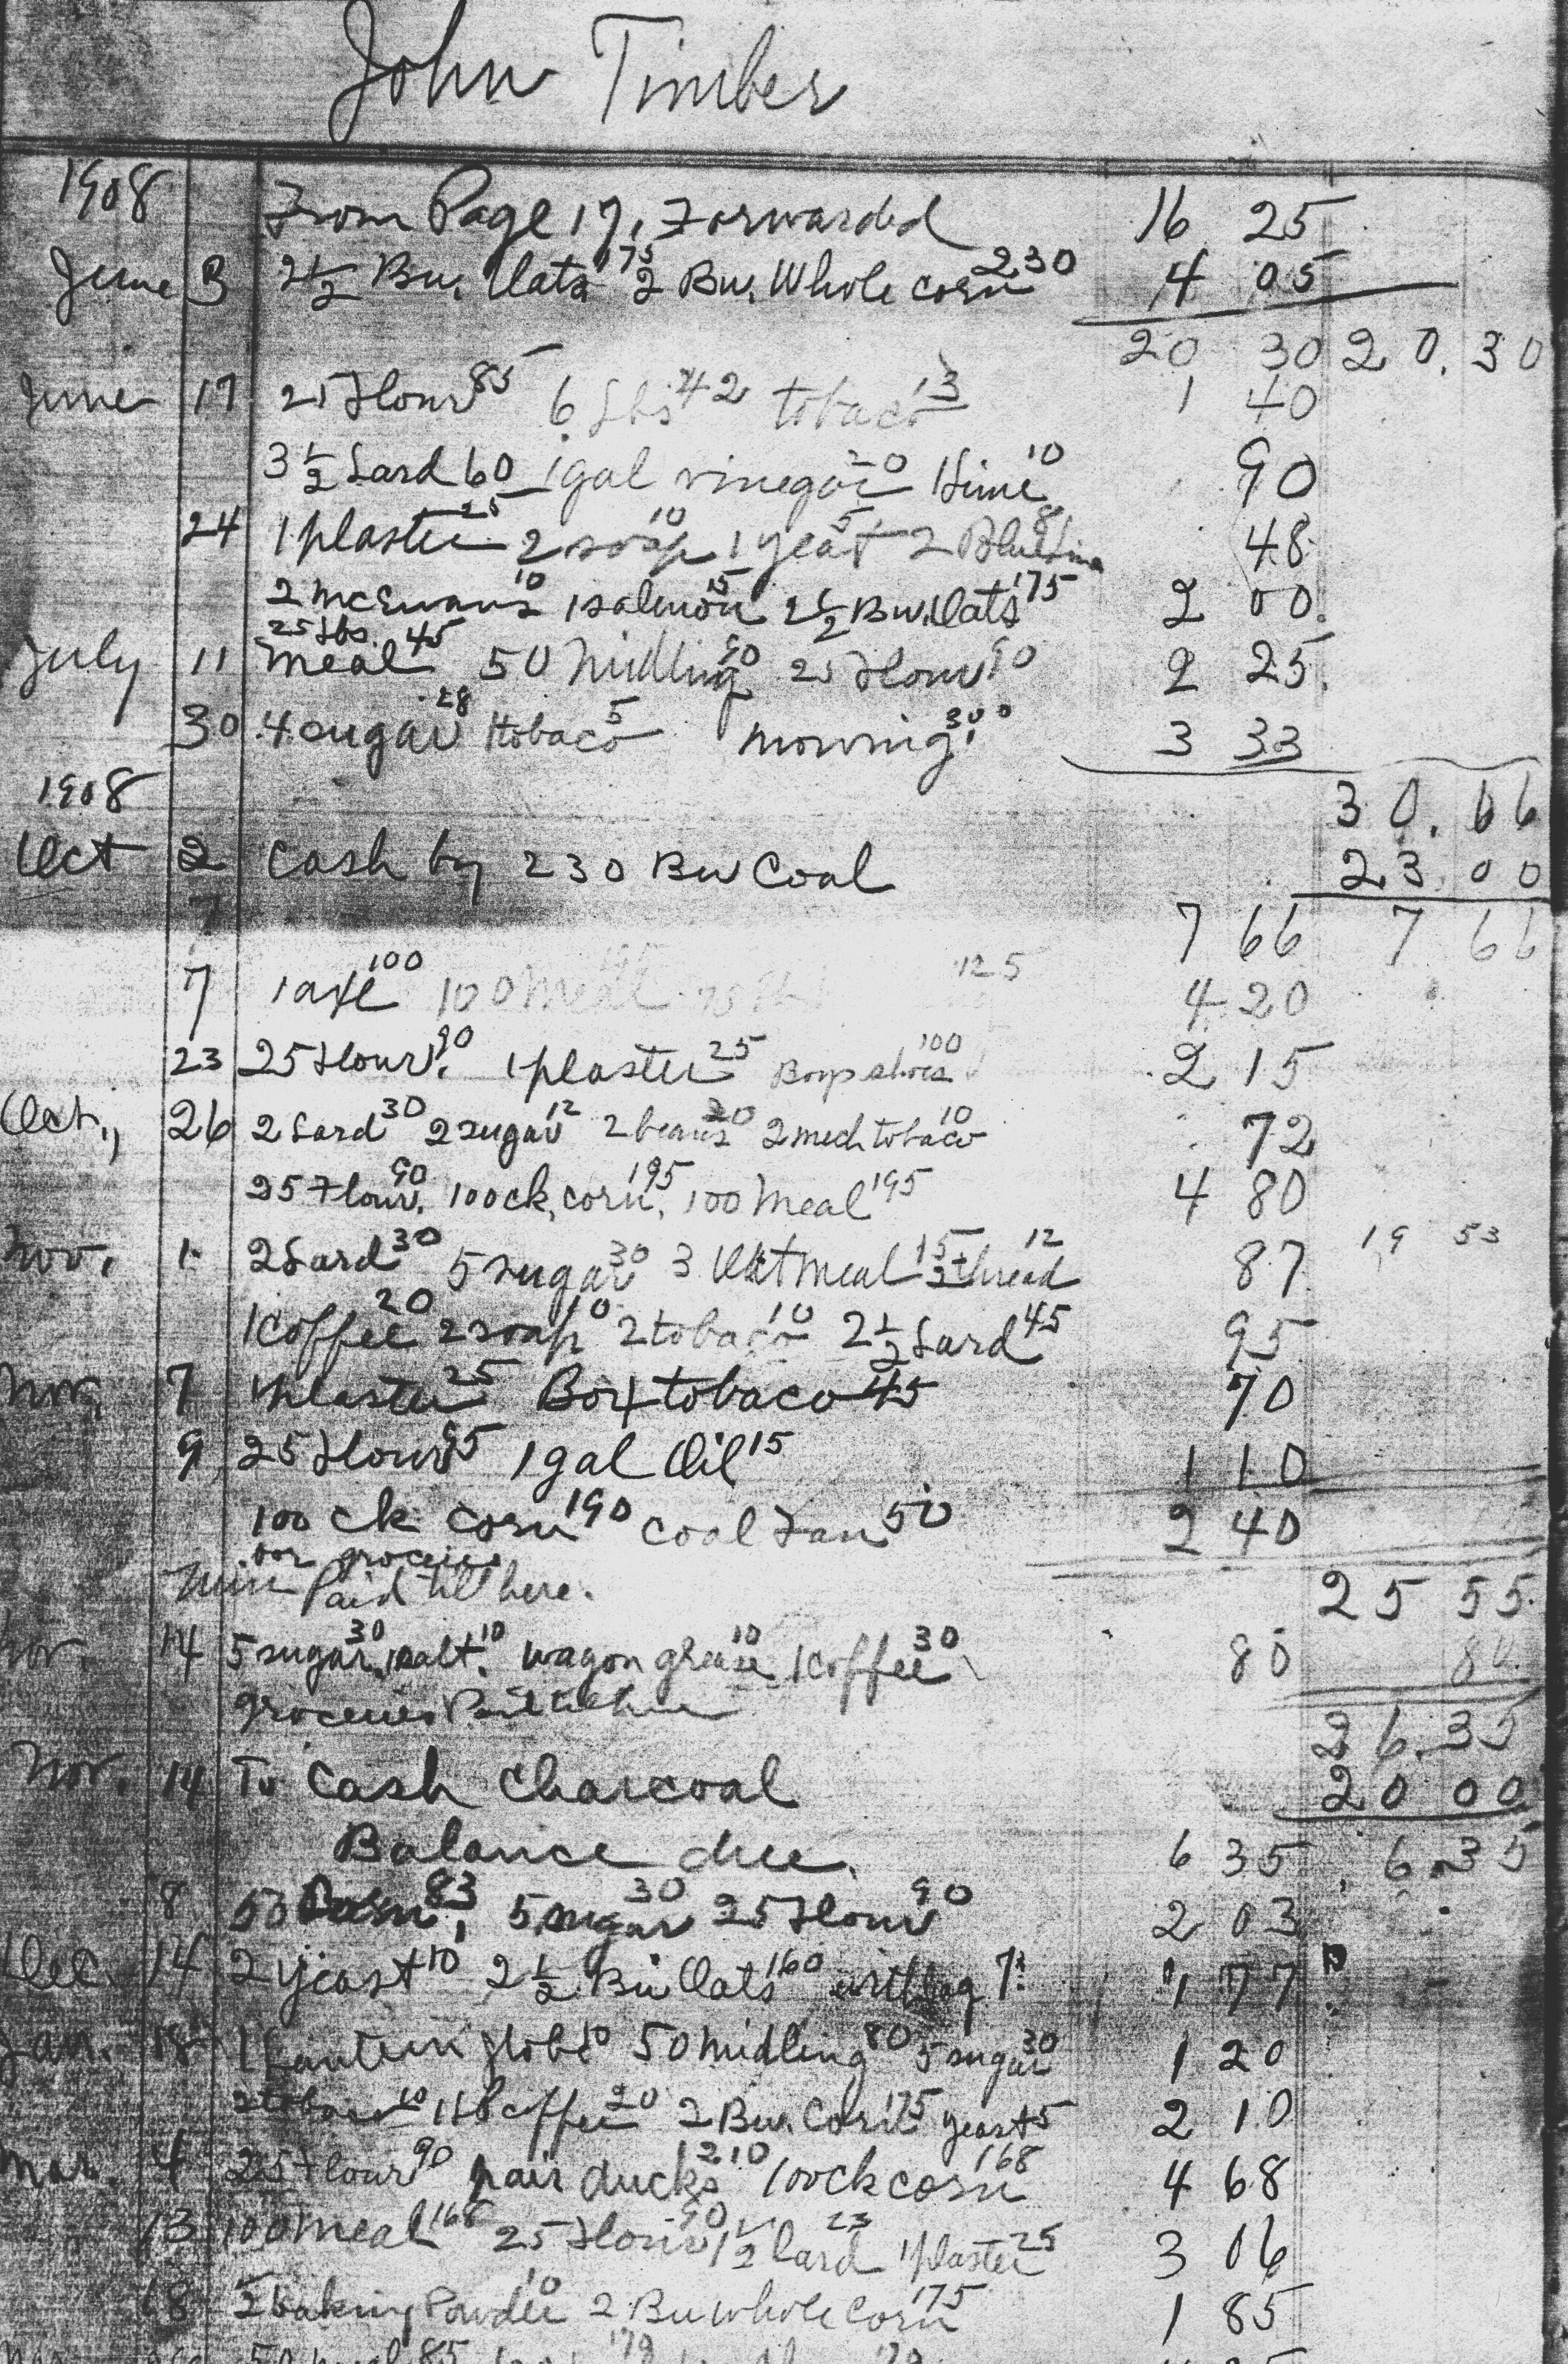 John Timber
1908 From Page 17, Forwarded 16 25
June 3 2½ Bu. Oats 175 2 Bu. Whole corn 230 4 05
20 30 20.30
June 17 25 Flour 85 6 Lbs 42 tobaco 13 1 40
3½ Lard 60 1 gal vinegar 20 1 lime 10 90
24 1 plaster 25 2 soap 10 1 yeast 5 2 8 48
2 McEwans 10 1 salmon 15 2½ Bu. Oats 175 2 00
25 Lbs.
July 11 meal 45 50 Midling 90 25 Flour 90 2 25
30 4 sugar 28 1 tobaco 5 mowing 300 3 33
1908 30.66
Oct 2 Cash by 230 Bu Coal 23 00
7 7 66 7 66
7 1 axe 100 100 meal 125 4 20
23 25 Flour 90 1 plaster 25 Boys shoes 100 2 15
Oct., 26 2 Lard 30 2 sugar 12 2 beans 20 2 mech tobaco 10 72
25 Flour 90 100 ck, corn 195 100 Meal 195 4 80
Nov. 1 2 Lard 30 5 sugar 30 3 Oatmeal 15 2 thread 12 87 19 53
1 coffee 20 2 soap 10 2 tobaco 10 2½ Lard 45 95
Nov. 7 1 plaster 25 Box tobaco 45 70
9 25 Flour 95 1 gal Oil 15 1 10
100 ck corn 190 coal Fan 50 2 40
our groceries
Paid till here. 25 55
Nov. 14 5 sugar 30 1 salt 10 wagon grease 10 1 coffee 30 80 80
groceries Paid till here 26.35
Nov. 14 To Cash Charcoal 20 00
Balance due. 6 35 6.35
8 50 Corn 83 5 sugar 30 25 Flour 90 2 03
Dec. 14 2 yeast 10 2½ Bu Oats 160 with bag 7 1 77
Jan. 18 1 Lantern globe 10 50 midling 80 5 sugar 30 1 20
2 tobaco 10 1 lb coffee 20 2 Bu. Corn 175 yeast 5 2 10
Mar. 4 25 Flour 90 1 pair ducks 210 100 ck corn 168 4 68
13 100 meal 168 25 Flour 90 1½ Lard 23 1 plaster 25 3 06
18 2 baking Powder 10 2 Bu whole corn 175 1 85
50 meal 85 179